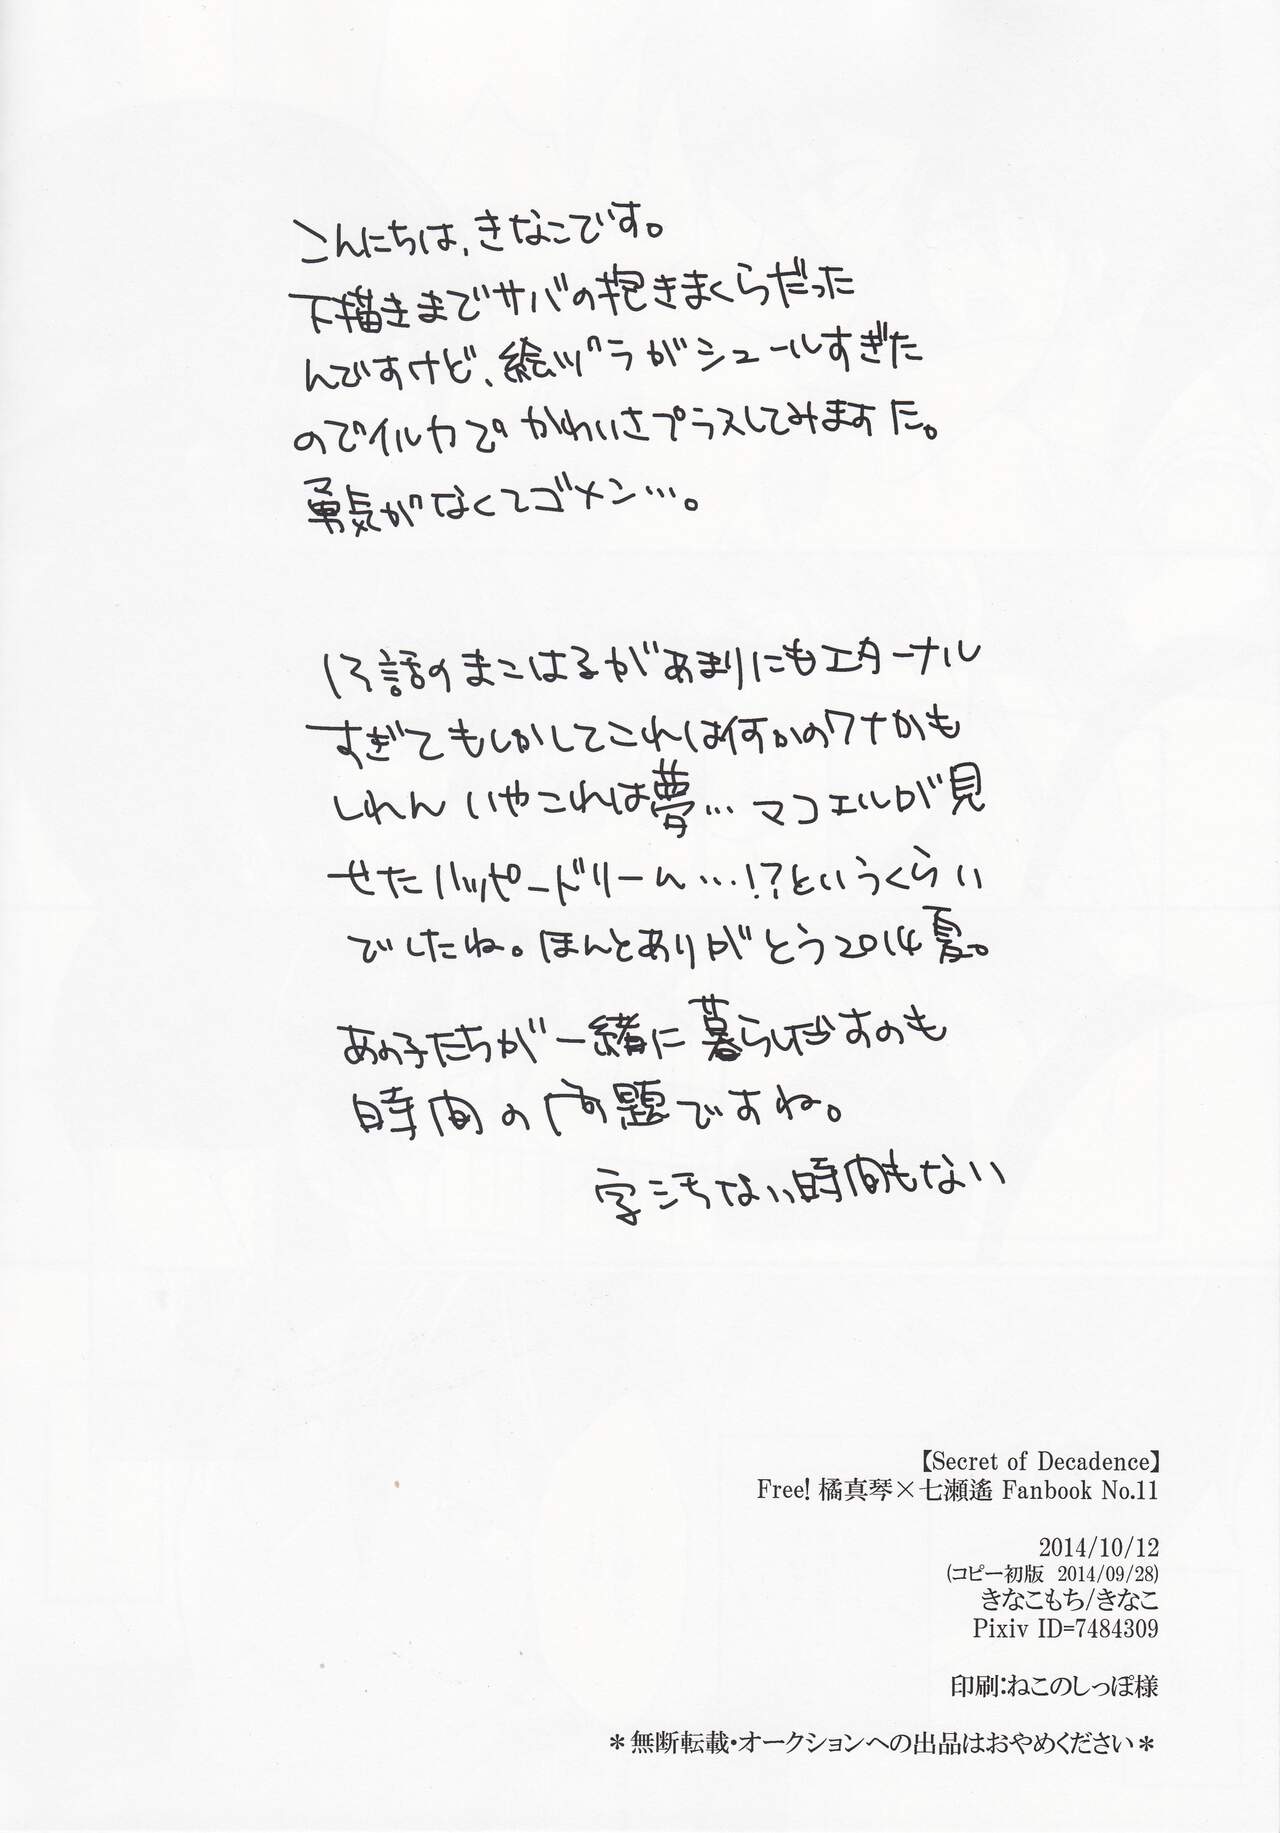 こんにちは、きなこです。
下描きまでサバの抱きまくらだった
んですけど、絵ヅラがシュールすぎた
のでイルカでかわいさプラスしてみますた。
勇気がなくてゴメン…。
13話のまこはるがあまりにもエターナル
すぎてもしかしてこれは何かのワナかも
しれん いやこれは夢…マコエルが見
せたハッピードリーム…!?というくらい
でしたね。ほんとありがとう2014夏。
あの子たちが一緒に暮らしだすのも
時間の問題ですね。
字汚ない時間もない
【Secret of Decadence】
Free! 橘真琴×七瀬遙 Fanbook No.11
2014/10/12
(コピー初版 2014/09/28)
きなこもち/きなこ
Pixiv ID=7484309
印刷:ねこのしっぽ様
＊無断転載・オークションへの出品はおやめください＊